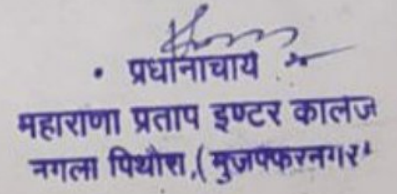 प्रधानाचार्य
महाराणा प्रताप इण्टर कालेज
नगला पिथौरा, (मुजफ्फरनगर)